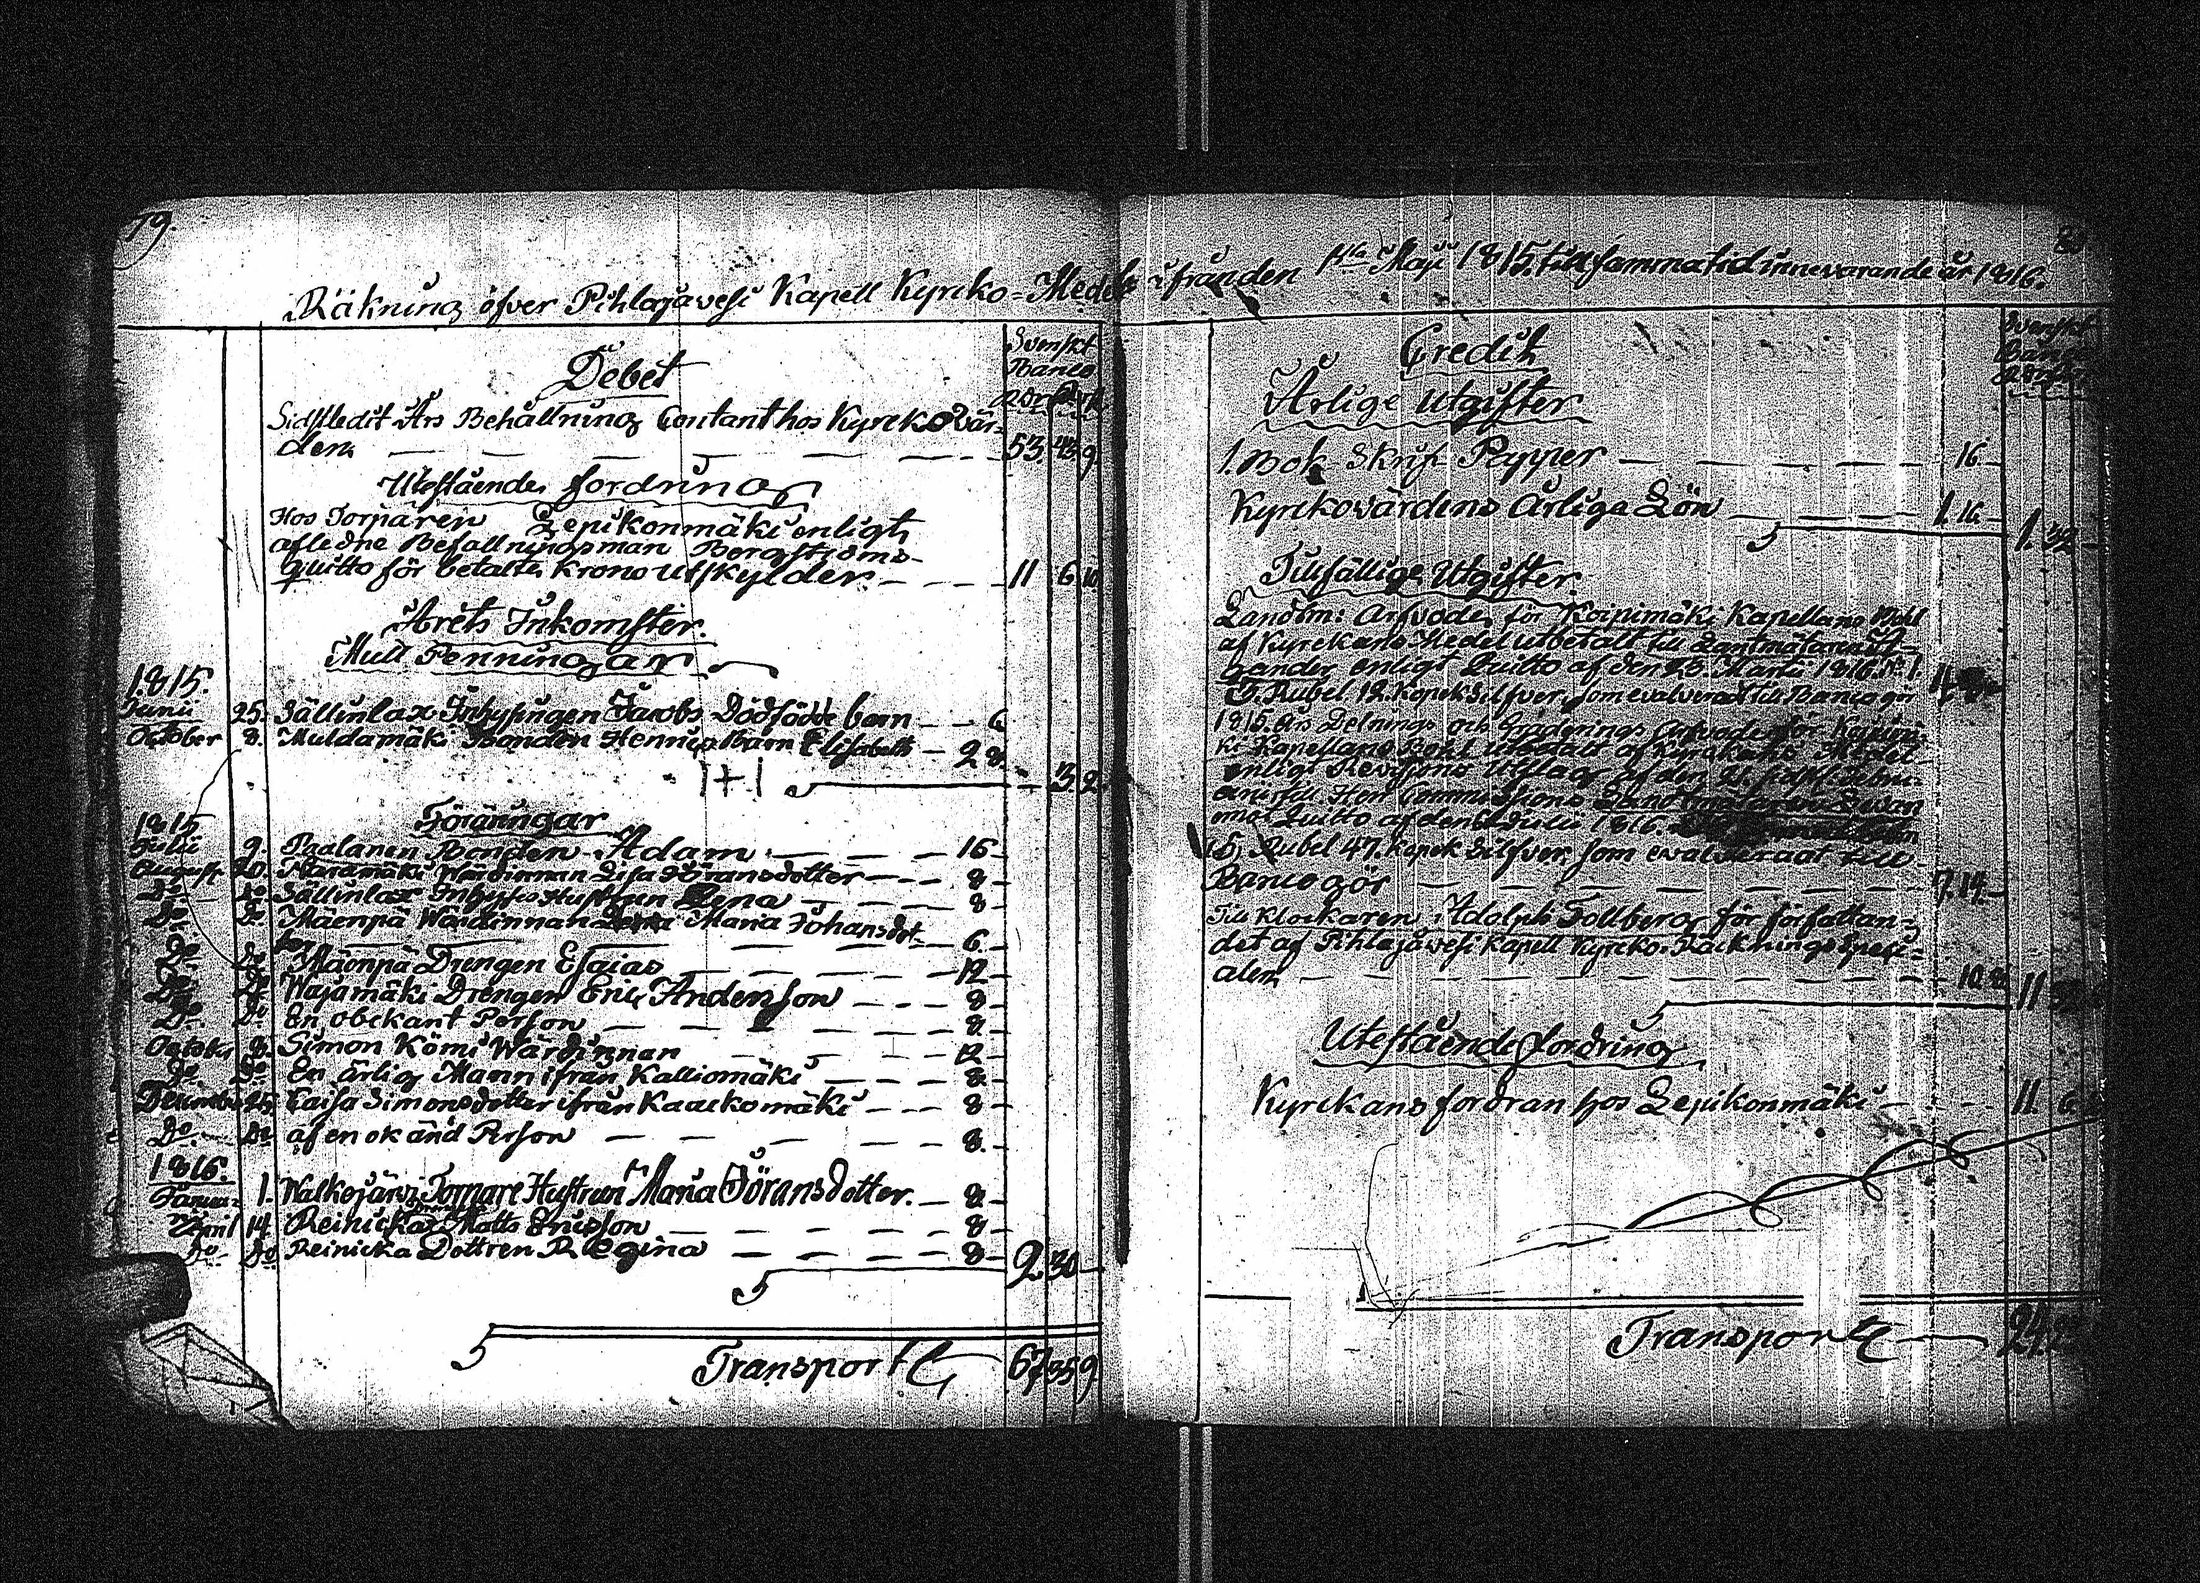 79.
Räkning öfver Pihlajavesi Kapell Kyrcko-Medel ifrån den 1sta Maji 1815 till samma tid innevarande år 1816.
Svenskt
Banco
Debet
Sidstledit Års Behållning Contant hos Kyrckovär-
den 53. 43. 9.
Utestående fordringar
Hos Torparen Lepikonmäki enligt
afledne Befallningsman Bergströms
quitto för betalte Krono utskylder 11 6. 10.
Årets Inkomster.
Mull Penningar
1815.
Junii 25. Sällinlax Inhysingen Jacobs Dödfödde barn 6.
October 8. Muldamäki Bonden Henrics Barn Elisabeth 2 8.
3. 2.
Föräringar
1815.
Julii 9. Paalanen Bonden Adam 16
August 20. Haramäki Wärdinnan Lisa Göransdotter 8
Do Do Sällinlax Inhyses Hustrun Lena 8
Do Do Mäenpä Wärdinnan Maria Johansdot-
ter 6.
Do Do Mäenpä Drengen Esaias 12
Do Do Wajamäki Drengen Eric Anderson 8
Do Do En obekant Person 8.
October 8. Simon Kömi Wärdinnan 12
Do Do En ärlig Mann ifrån Kalliomäki 8.
December 25. Caisa Simonsdotter ifrån Kaackomäki 8
Do Do af en okänd Person 8.
1816.
Januar: 1. Walkejärvi Torpare Hustrun Maria Göransdotter. 8.
April 14 Reinicka Matts Ericsson 8
Do Do Reinicka Dottren Regina 8
2. 30
Transport 67 35 9
Svenskt
Banco
Credit
Årlige Utgifter
1. Bok Skrif Papper 16.
Kyrckovärdens Årliga Lön 1. 16.
1. 32
Tillfällige Utgifter
Landtm: Arfvode för Koipimäki Kapellans Bohl
af Kyrckans Medel utbetalt till Landtmätaren
enligt Quitto af den Martii 1816. No 1.
5. Rubel 12. Kopek Silfver, som evalverat till Banco gör
1815. Års Delnings och Graderings Arfvode för
Kapellans Bohl utbetalt af Kyrckans Medel
enligt Revisions Utslag af den 21. sidstl.
Herr Commissions Landtmätaren
mot Quitto af den Julii 1816.
5. Rubel 47. Kopek Silfver som evalverat till
Banco gör 7. 14.
Till Klockaren Adolph Tollberg för författan-
det af Pihlajavesi Kapell Kyrcko-Räcknings Speci-
alen 10. 8.
11
Utestående fordring
Kyrckans fordran hos Lepikonmäki 11. 6.
Transport 24.